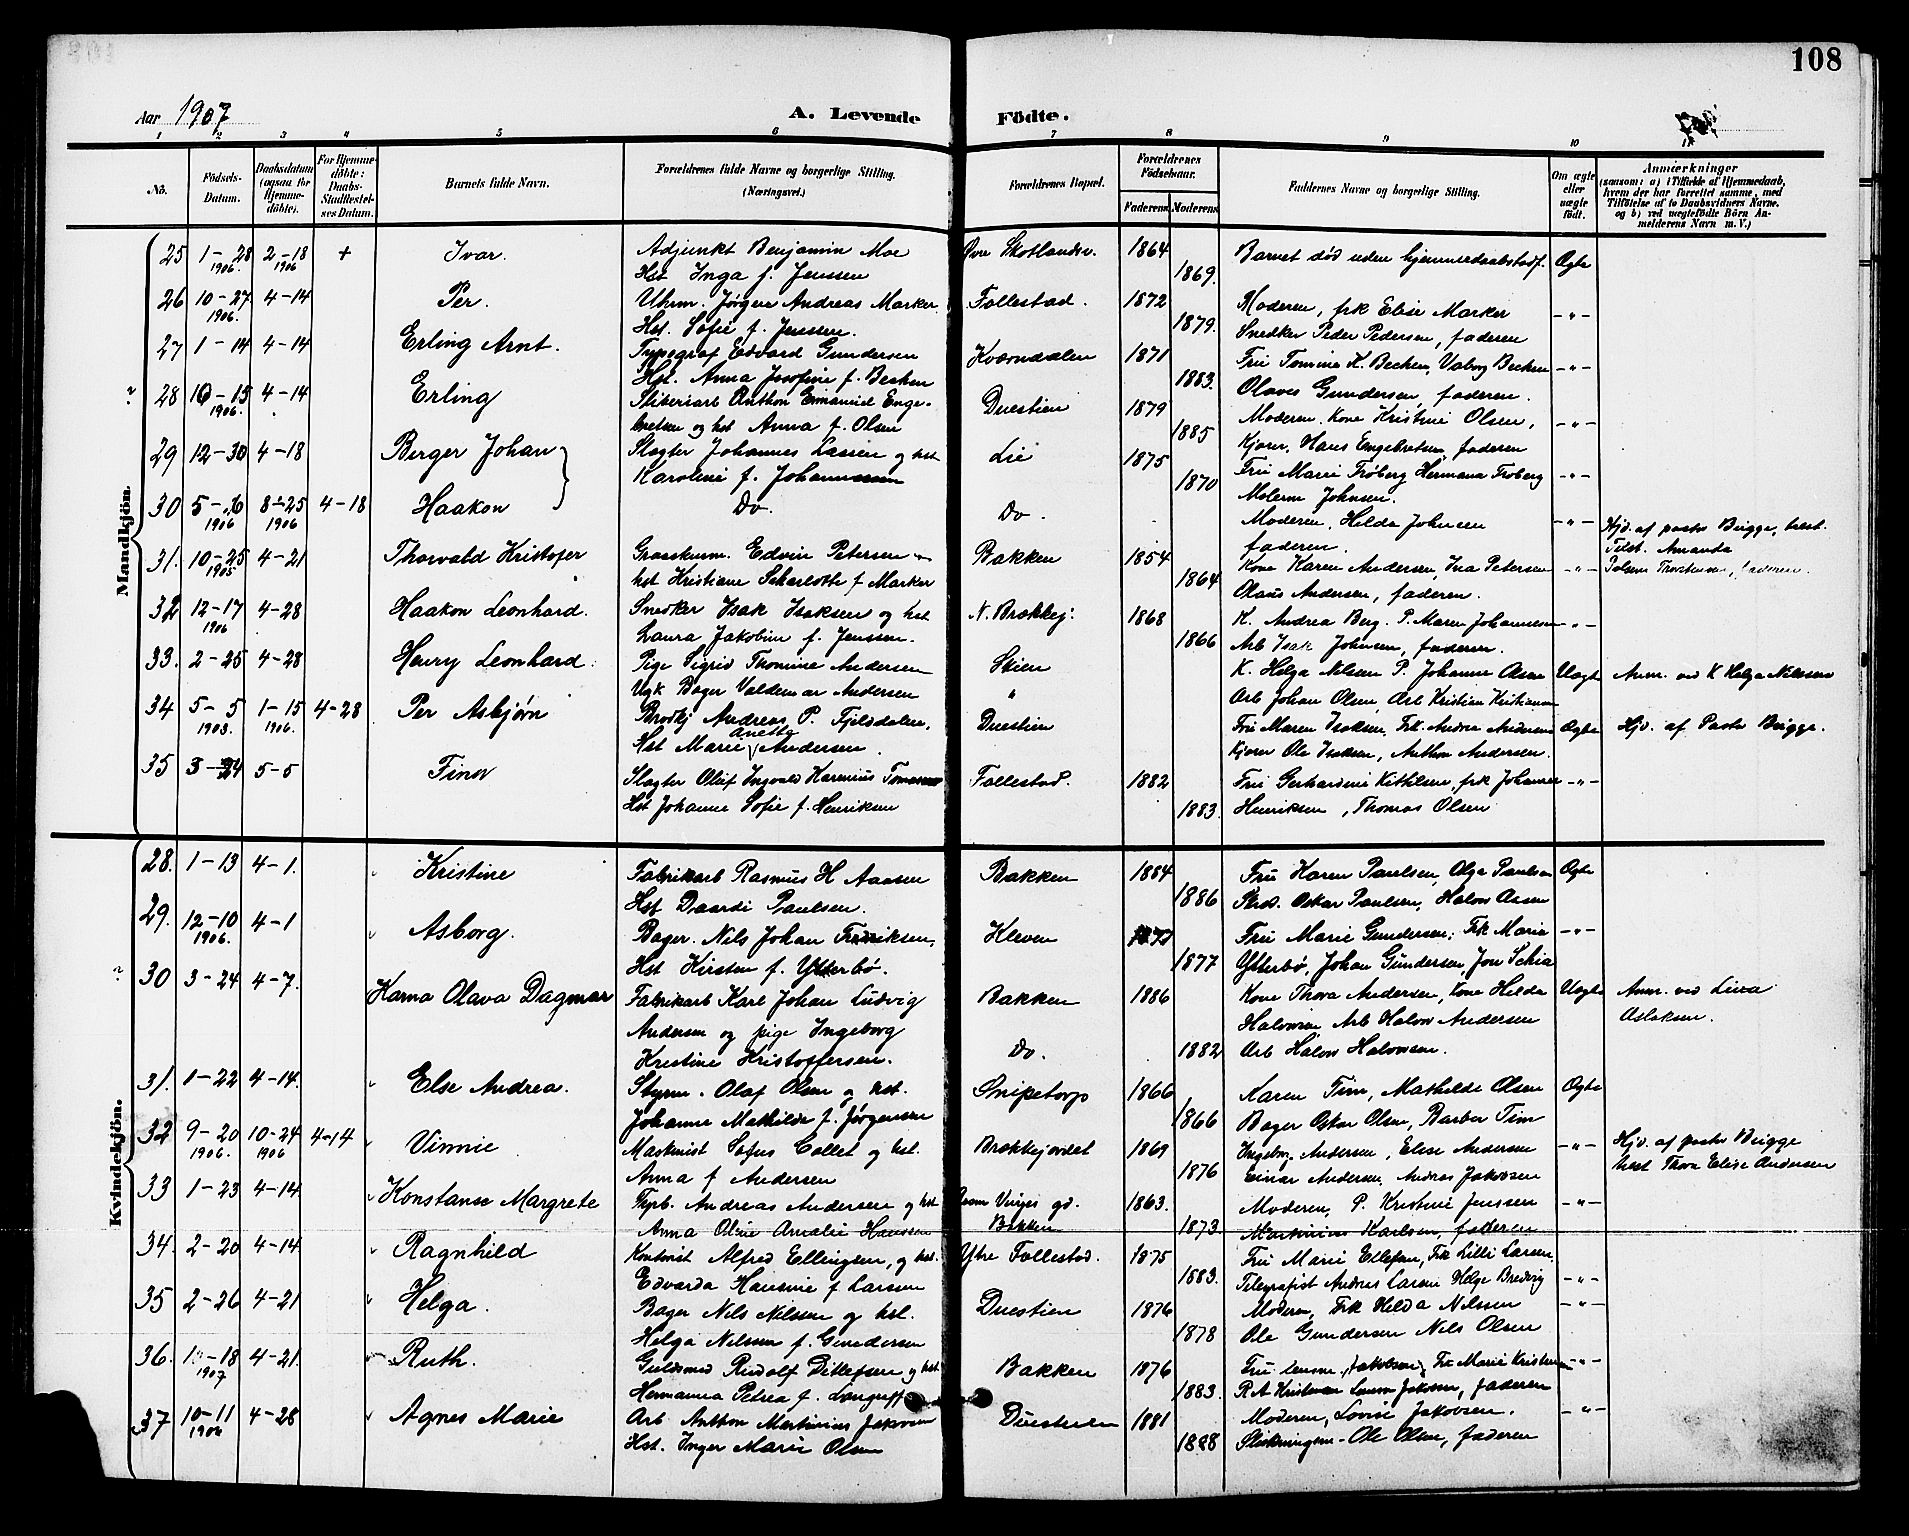 108
Aar 1907
A. Levende Födte.
1 2 3 4 5 6 7 8 9 10 11
No.
Födsels-Datum.
Daabsdatum (ogsaa for Hjemmedöbte).
For Hjemmedöbte: Daabs-Stadfestelses Datum.
Barnets fulde Navn.
Forældrenes fulde Navne og borgerlige Stilling. (Næringsvei.)
Forældrenes Bopæl.
Forældrenes Födselsaar.
Faderens Moderens
Faddernes Navne og borgerlige Stilling.
Om ægte eller uægte födt.
Anmærkninger
(saasom: a) i Tilfælde af Hjemmedaab, hvem der har forrettet samme, med Tilföielse af to Daabsvidners Navne, og b) ved uægtefödte Börn Anmelderens Navn m. V.)
Mandkjön.
25 1-28 1906. 2-18 1906 + Ivar. Adjunkt Benjamin Moe Øvre Skotlandsv. 1864 Barnet død uden hjemmedaabstadf. Ægte
Hst Inga f. Jenssen 1869.
26 10-27 1906. 4-14 Per. Uhrm. Jørgen Andreas Marker Follestad. 1872 Moderen, frk Elise Marker -"-
Hst. Sofie f. Jenssen. 1879. Snedker Peder Pedersen, faderen
27 1-14 4-14 Erling Arnt. Typograf Edvard Gundersen Kværndalen 1871 Fru Tomine K. Becken, Valborg Becken -"-
Hst. Anna Josefine f. Becken 1883. Olaves Gundersen, faderen.
28 10-15 1906. 4-14 Erling Sliberiarb Anthon Emanuel Enge- Duestien 1879 Moderen, Kone Kristine Olsen, -"-
bretsen og hst Anna f. Olsen 1885 Kjører, Hans Engebretsen, faderen
29 12-30 4-18 Birger Johan Slagter Johannes Lassen og hst Lie 1875 Fru Marie Frøberg Hermana Frøberg -"-
Karoline f. Johannessen 1870 Johnsen.
30 5-6 1906 8-25 1906 4-18 Haakon Do. Do. Moderen, Hilda Johnsen -"- Hjd. af pastor Brigge,
faderen.
31. 10-25 1905 4-21 Thorvald Kristofer Edvin Petersen Bakken 1854 Kone Karen Andersen, Ina Petersen -"- faderen.
hst Kristiane Scharlotte f Marker 1864 Olaus Andersen, faderen.
32 12-17 1906 4-28 Haakon Leonhard. Snedker Isak Isaksen og hst N. Brækkej: 1868 K. Andrea Berg. P. Maren Johannesen -"-
Laura Jakobine f. Jenssen. 1866 Arb Isak Johnsen, faderen.
33. 2-25 4-28 Henry Leonhard. Pige Sigrid Thomine Andersen Skien K. Helga Nilsen P. Johanne Olsen Uægte Anm. ved K Helga Nilssen
Ugk Bager Valdemar Andersen " Arb Johan Olsen, Arb Kristian Kristiansen
34 5-5 1903. 1-15 1906. 4-28 Per Asbjørn Andreas P. Fjelldalen, Duestien Fru Maren Isaksen, Frk. Andrea Andersen Ægte Hjd. af Pastor Brigge.
Hst Marie Anette Andersen. Kjører Ole Isaksen, Anthon Andersen.
35 3-24 5-5 Finn Slagter Oluf Ingvald Karenius Tomassen Follestad. 1882 Fru Gerhardine Kittilsen, frk Johanne -"-
Hst Johanne Sofie f. Henriksen 1883. Henriksen, Thomas Olsen
Kvindekjön.
28. 1-13 4-1. Kristine Fabrikarb Rasmus H Aasen Bakken 1884 Fru Karen Paulsen, Olga Paulsen Ægte
Hst Paulsen. 1886 Oskar Paulsen, Halvor Aasen
29. 12-10 1906. 4-1 Asborg. Bager. Nils Johan Fredriksen, Kleven 1877 Fru Marie Gundersen: Frk Marie -"-
Hst Kirsten f. Ytterbø. 1877 Ytterbø, Johan Gundersen, Jon Schia
30 3-24 4-7. Karna Olava Dagmar Fabrikarb Karl Johan Ludvig Bakken 1886 Kone Thora Andersen, Kone Hilda Uægte Anm. ved Lina
Andersen og pige Ingeborg Halvorsen, Arb Halvor Andersen Aslaksen.
Kristine Kristoffersen. Do. 1882 Arb Halvor Halvorsen.
31. 1-22 4-14. Else Andrea. Styrm. Olaf Olsen og hst. Snipetorp 1866 Karen Tim, Mathilde Olsen Ægte
Johanne Mathilde f. Jørgensen 1866 Bager Oskar Olsen, Barber Tim
32 9-20 1906. 10-24 1906 4-14 Vinnie Maskinist Sofus Collet og hst. Brækkejordet 1869 Ingeborg Andersen, Elise Andersen -"- Hjd. af pastor Brigge
Anna f Andersen 1876 Einar Andersen, Andreas Jakobsen hest Thora Elise Andersen
33 1-23 4-14. Konstanse Margrete Typb. Andreas Andersen og hst Bakken 1863. Moderen, P. Kristine Jenssen -"-
Anna Oline Amalie Hanssen 1873 Martinius Karlsen, faderen
34. 2-20 4-14 Ragnhild Kontorist Alfred Ellingsen, og hst. Ytre Follestad. 1875 Fru Marie Ellefsen, Frk Lilli Larsen
Edvarda Hansine f Larsen 1883. Telegrafist Andres Larsen Helge Bredvig -"-
35 2-26 4-21 Helga. Bager Nils Nilssen og hst. Duestien 1876 Moderen, Frk Hilda Nilssen -"-
Helga Nilssen f. Gundersen 1878 Ole Gundersen Nils Olsen
36. 1-18 1907 4-21. Ruth. Guldsmed Rudolf Ditlefsen og hst. Bakken 1876 Fru Jakobsen, Frk Marie Kristensen -"-
Hermanna Petrea f. 1883. faderen
37 10-11 1906 4-28 Agnes Marie Arb Anthon Martinius Jakobsen Duestien 1881 Moderen, Lovise Jakobsen. -"-
Hst. Inger Marie Olsen 1888 Ole Olsen, faderen